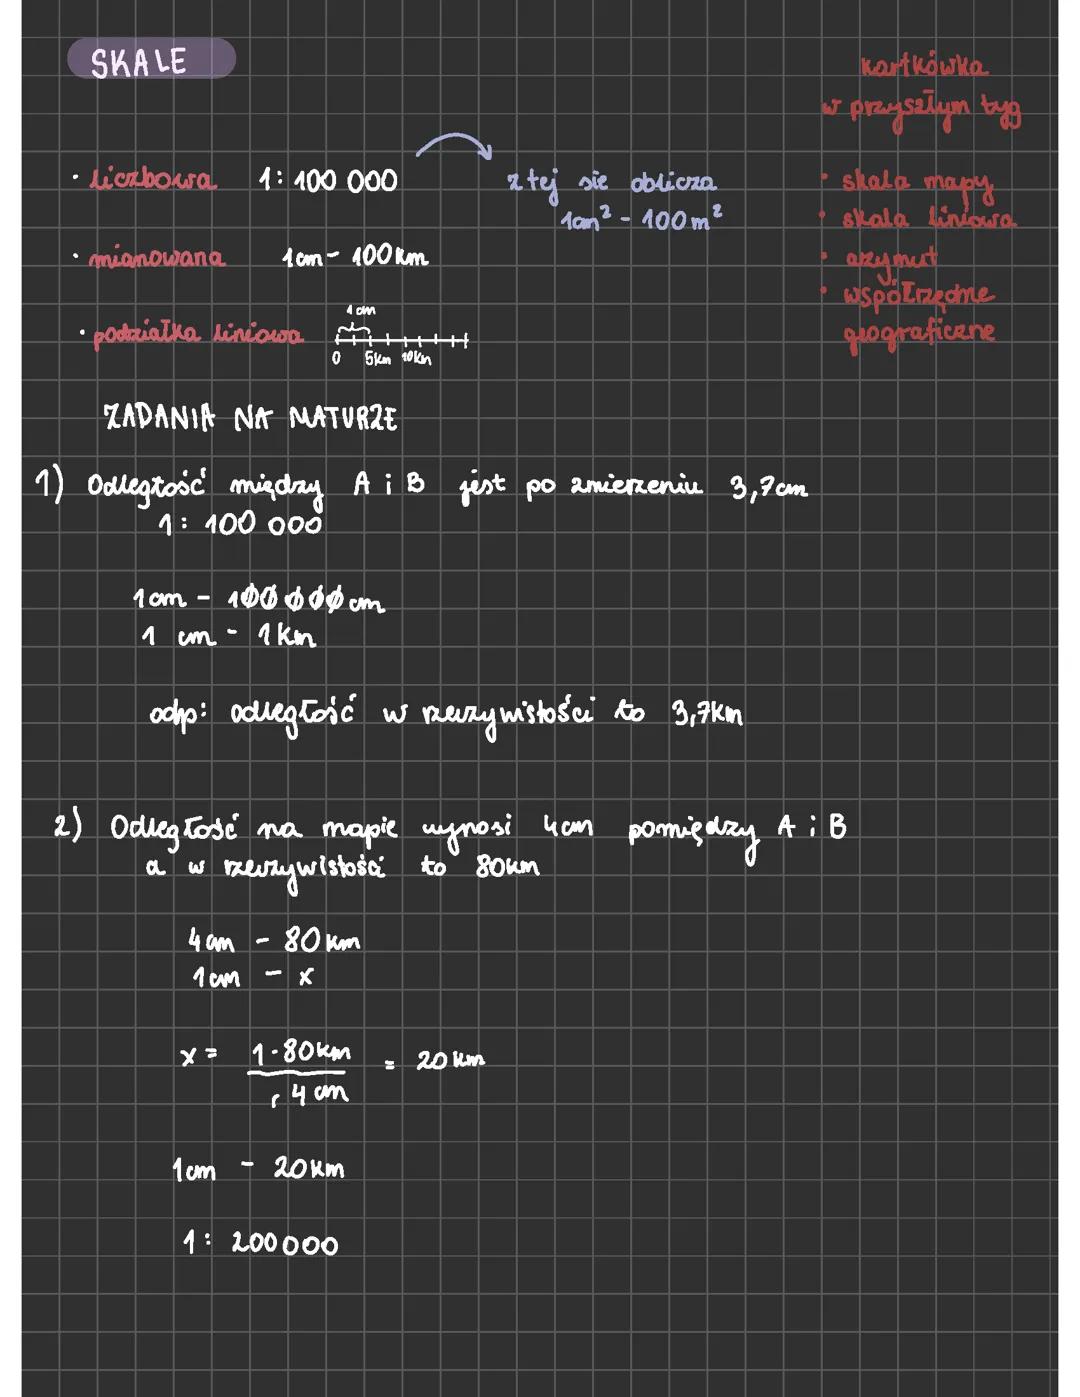 SKALE
kartkówka
w przyszłym tyg
• skala mapy
• skala liniowa
• azymut
• współrzędne
geograficzne
• liczbowa 1: 100 000
z tej sie oblicza
1cm² - 100m²
• mianowana 1cm - 100km
• podziałka liniowa
1cm
0 5km 10km
ZADANIA NA MATURZE
1) Odległość między A i B jest po zmierzeniu 3,7cm
1: 100 000
1cm - 100 000 cm
1 cm - 1km
odp: odległość w rzeczywistości to 3,7km
2) Odległość na mapie wynosi 4cm pomiędzy A i B
a w rzeczywistości to 80km
4cm - 80km
1cm - x
x = 1·80km / 4cm = 20km
1cm - 20km
1: 200000